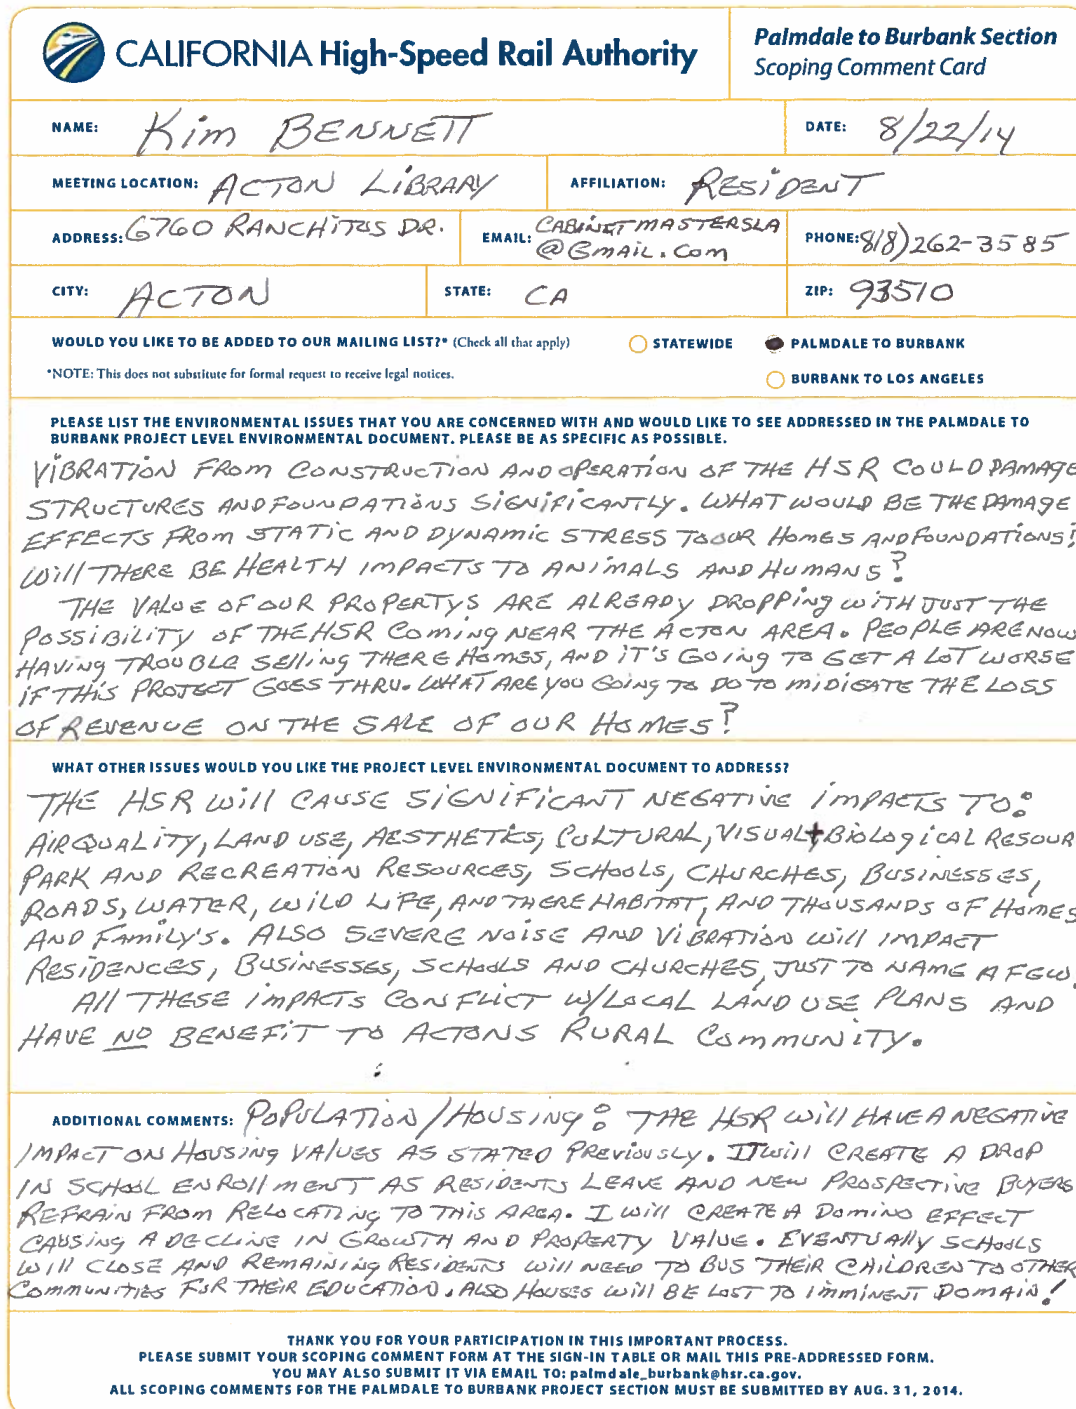 CALIFORNIA High-Speed Rail Authority
Palmdale to Burbank Section
Scoping Comment Card
NAME: Kim BENNETT
DATE: 8/22/14
MEETING LOCATION: ACTON LIBRARY
AFFILIATION: RESIDENT
ADDRESS: 6760 RANCHITOS DR.
EMAIL: CABINETMASTERSLA
@GMAIL.Com
PHONE: 818)262-3585
CITY: ACTON
STATE: CA
ZIP: 93510
WOULD YOU LIKE TO BE ADDED TO OUR MAILING LIST?* (Check all that apply)
STATEWIDE
PALMDALE TO BURBANK
*NOTE: This does not substitute for formal request to receive legal notices.
BURBANK TO LOS ANGELES
PLEASE LIST THE ENVIRONMENTAL ISSUES THAT YOU ARE CONCERNED WITH AND WOULD LIKE TO SEE ADDRESSED IN THE PALMDALE TO
BURBANK PROJECT LEVEL ENVIRONMENTAL DOCUMENT. PLEASE BE AS SPECIFIC AS POSSIBLE.
VIBRATION FROM CONSTRUCTION AND OPERATION OF THE HSR COULD DAMAGE
STRUCTURES AND FOUNDATIONS SIGNIFICANTLY. WHAT WOULD BE THE DAMAGE
EFFECTS FROM STATIC AND DYNAMIC STRESS TO OUR HOMES AND FOUNDATIONS?
WILL THERE BE HEALTH IMPACTS TO ANIMALS AND HUMANS?
THE VALUE OF OUR PROPERTYS ARE ALREADY DROPPING WITH JUST THE
POSSIBILITY OF THE HSR COMING NEAR THE ACTON AREA. PEOPLE ARE NOW
HAVING TROUBLE SELLING THERE HOMES, AND IT'S GOING TO GET A LOT WORSE
IF THIS PROJECT GOES THRU. WHAT ARE YOU GOING TO DO TO MIDIGATE THE LOSS
OF REVENUE ON THE SALE OF OUR HOMES?
WHAT OTHER ISSUES WOULD YOU LIKE THE PROJECT LEVEL ENVIRONMENTAL DOCUMENT TO ADDRESS?
THE HSR WILL CAUSE SIGNIFICANT NEGATIVE IMPACTS TO:
AIR QUALITY, LAND USE, AESTHETICS, CULTURAL, VISUAL + BIOLOGICAL RESOUR
PARK AND RECREATION RESOURCES, SCHOOLS, CHURCHES, BUSINESSES,
ROADS, WATER, WILD LIFE, AND THERE HABITAT, AND THOUSANDS OF HOMES
AND FAMILY'S. ALSO SEVERE NOISE AND VIBRATION WILL IMPACT
RESIDENCES, BUSINESSES, SCHOOLS AND CHURCHES, JUST TO NAME A FEW.
ALL THESE IMPACTS CONFLICT W/LOCAL LAND USE PLANS AND
HAVE NO BENEFIT TO ACTONS RURAL COMMUNITY.
ADDITIONAL COMMENTS: POPULATION/HOUSING: THE HSR WILL HAVE A NEGATIVE
IMPACT ON HOUSING VALUES AS STATED PREVIOUSLY. IT WILL CREATE A DROP
IN SCHOOL ENROLLMENT AS RESIDENTS LEAVE AND NEW PROSPECTIVE BUYERS
REFRAIN FROM RELOCATING TO THIS AREA. I WILL CREATE A DOMINO EFFECT
CAUSING A DECLINE IN GROWTH AND PROPERTY VALUE. EVENTUALLY SCHOOLS
WILL CLOSE AND REMAINING RESIDENTS WILL NEED TO BUS THEIR CHILDREN TO OTHER
COMMUNITIES FOR THEIR EDUCATION. ALSO HOUSES WILL BE LOST TO IMMINENT DOMAIN!
THANK YOU FOR YOUR PARTICIPATION IN THIS IMPORTANT PROCESS.
PLEASE SUBMIT YOUR SCOPING COMMENT FORM AT THE SIGN-IN TABLE OR MAIL THIS PRE-ADDRESSED FORM.
YOU MAY ALSO SUBMIT IT VIA EMAIL TO: palmdale_burbank@hsr.ca.gov.
ALL SCOPING COMMENTS FOR THE PALMDALE TO BURBANK PROJECT SECTION MUST BE SUBMITTED BY AUG. 31, 2014.